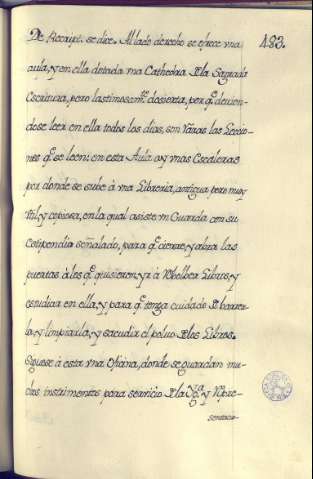 De Rescript. se dice. Al lado derecho se ofrece vna
483.
aula, y en ella dotada vna Cathedra de la Sagrada
Escritura, pero lastimosamte. desierta, por q. devien-
dose leer en ella todos los dias, son raras las Leccio-
nes q. se leen; en esta Aula ay vnas Escaleras
por donde se sube à vna Libreria, antigua pero muy
vtil, y copiosa, en la qual asiste vn Guarda con su
estipendio señalado, para q. cierre, y abra las
puertas à los q. quisieren yr à rebolber Libros, y
estudiar en ella, y para q. tenga cuidado de barrer-
la, y limpiarla, y sacudir el polvo de los Libros.
Siguese à esta vna Oficina, donde se guardan mu-
chos instrumentos para servicio de la Yga. y repre-
sentacio